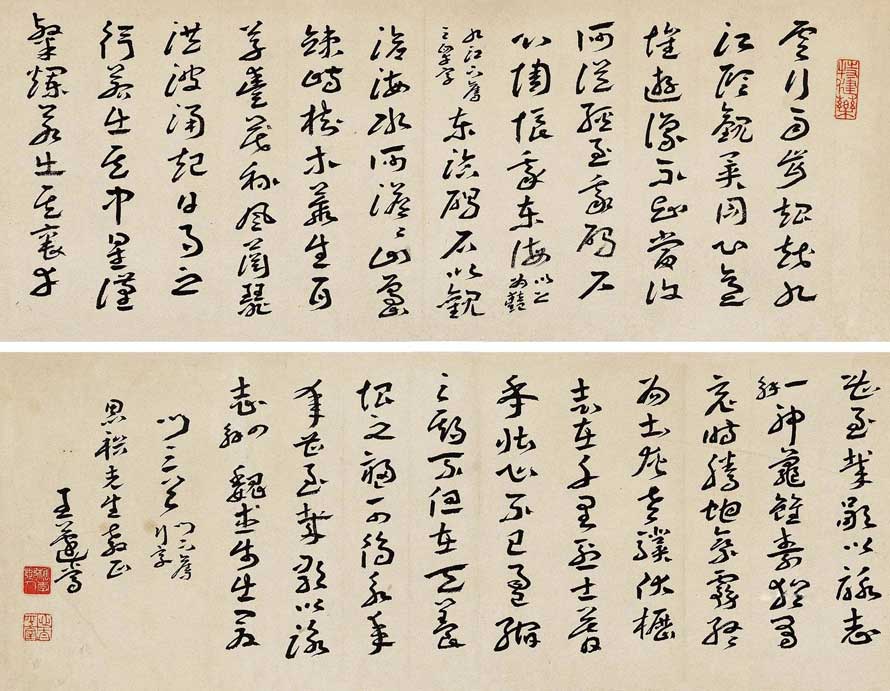 雲行雨步超越九
江臨觀異同心意
懷遊豫不知當復
何從經至我碣石
心惆悵我東海以上為豔
九江下奪之皋字東臨碣石以觀
滄海水何澹澹山島
竦峙樹木叢生百
草豐茂秋風蕭瑟
洪波涌起日月之
行若出其中星漢
粲爛若出其裏幸
甚至哉歌以詠志
一解神龜雖壽猶有
竟時騰蛇乘霧終
為土灰老驥伏櫪
志在千里烈士暮
年壯心不已盈縮
之期不但在天養
怡之福可得永年
幸甚至哉歌以詠
志四解魏武步出夏
門二首門下奪行字
先生教正
王蘧常